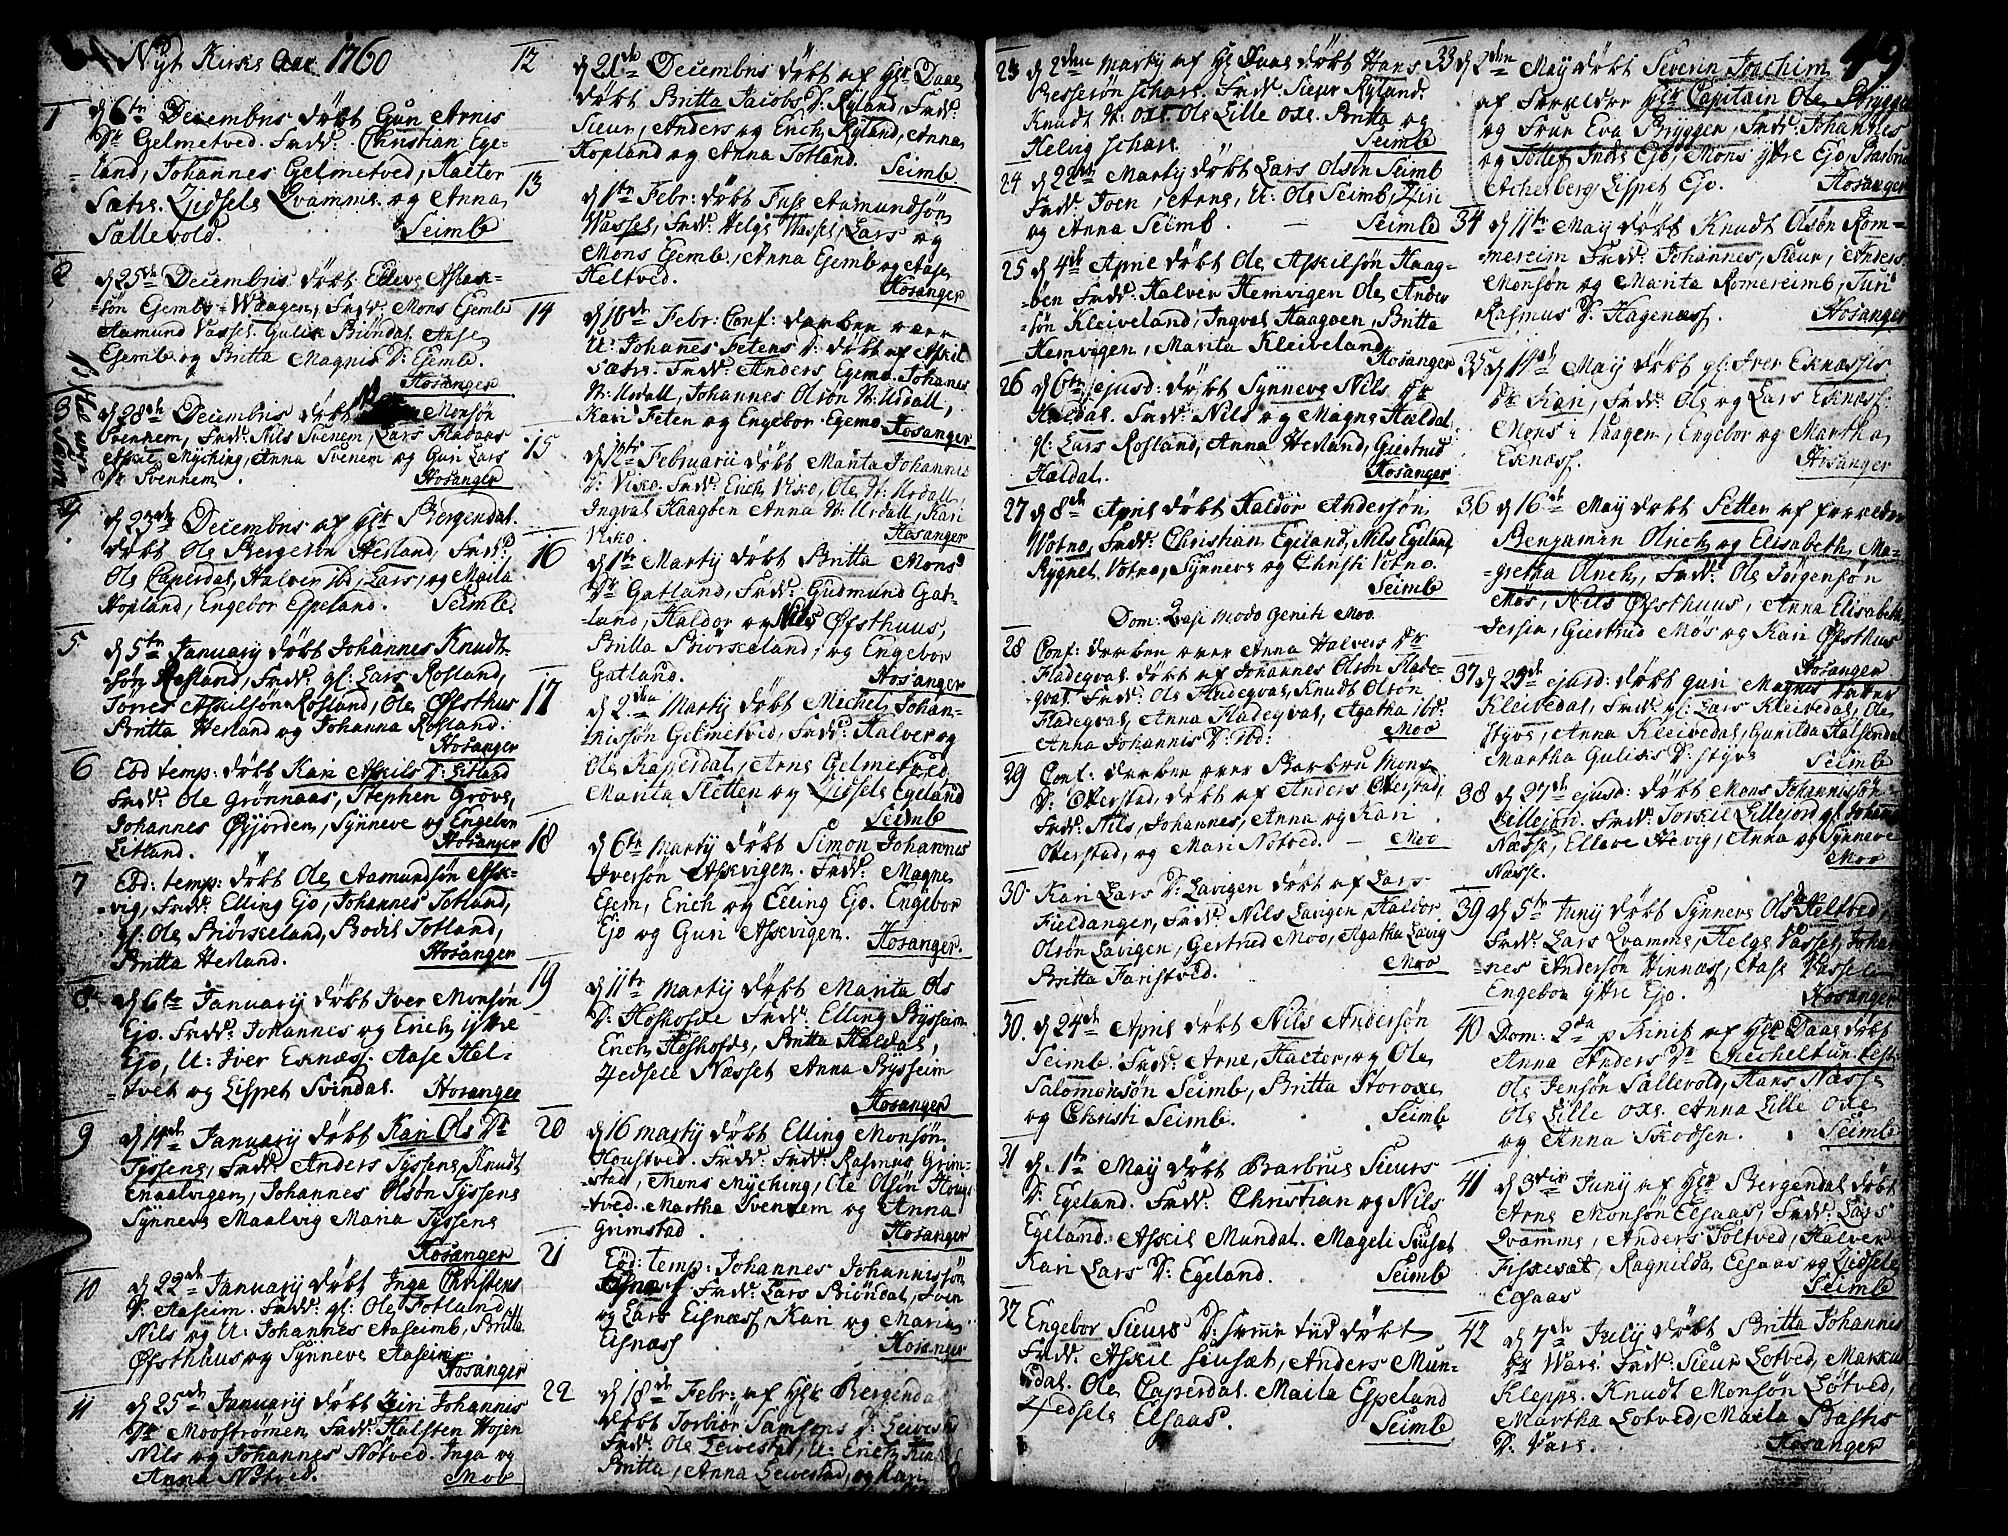 Nyt Kirke Aar 1760
1 d 6te Decembris döbt Guri Arnis
Dr Gelmetved. Fadd: Christian Ege-
land, Johannes Gelmetved, Hactor
Sætre. Zidsele Qvamme og Anna
Sællevold. Seimb
2 d 25de Decembris döbt Elleve
-sön Gjembs-Waagen, Fadd: Mons Gjemb
Aamund Vassel Gulik Biöndal Aase
Gjemb og Britta Magnis D: Gjemb.
Hosanger
3 d 28de Decembris döbt Monsön
Svennem, Fadd: Nils Svenem, Lars
Askil Myching, Anna Svenem og Guri Lars
Dr Svennem. Hosanger
4 d 23de Decembris af Hr Bergendal
döbt Ole Bergesön Herland, Fadd:
Ole Caperdal, Halver ibd, Lars, og Maila
Hopland, Engebor Espeland. Seimb.
5 d 5te January döbt Johannes Knudt-
sön Rosland, Fadd: gl: Lars Rosland,
Törres Askilsön Rosland, Ole Öfsthus
Britta Herland og Johanna Rosland.
Hosanger
6 Eod temp: döbt Kari Askils D: Litland
Fadd: Ole Grönnaas, Stephen Grove,
Johannes Öyjorden, Synneve og Engebor
Litland. Hosanger
7 Eod: temp: döbt Ole Aamundsön Ask-
vig, Fadd: Elling Ejo, Johannes Totland,
gl: Ole Biörkeland, Bodil Totland,
Britta Herland. Hosanger
8 d 6te January döbt Iver Monsön
Ejo. Fadd: Johannes og Erich yttre
Ejo, U: Iver Eknæss. Aase Hel-
-tvet og Lispet Svindal. Hosanger
9 d 14de January döbt Kari Ols Dr
Tyssens, Fadd: Anders Tyssens, Knudt
Maalvigen, Johannes Olsön Tyssens
Synneve Maalvig Maria Tyssens
Hosanger
10 d 22de January döbt Inga Christens
D: Aaseim. Fadd: gl: Ole Totland
Nils og U: Johannes Aaseimb, Britta
Öfsthuus og Synneve Aaseim
Hosanger
11 d 25de January döbt Ziri Johannis
Dr Mooströmen, Fadd: Halsten Hojen
Nils og Johannes Nötved. Inga og
Anna Nötved. Moo
12 d 21de Decembris döbt af Hr Daae
döbt Britta Jacobs D: Ryland, Fadd:
Sieur, Anders og Erich Ryland, Anna
Hopland og Anna Totland.
Seimb.
13 d 1te Febr: döbt Fuse Aamundsön
Wassel, Fadd: Helge Wassel, Lars og
Mons Gjemb, Anna Gjemb og Aase
Heltved. Hosanger
14 d 10de Febr: Conf: daaben over
U: Johanes Fetens D: döbt af Askil
Sætre. Fadd: Anders Egemo. Johanes
N: Urdall, Johannes Olsön N: Urdall,
Kari Feten og Engebor Egemo. Hosanger
15 d Februarii döbt Marita Johannis
D: Viko. Fadd: Erich Viko, Ole N: Urdall,
Ingval Haagöen Anna N: Urdall, Kari
Viko. Hosanger
16 d 1te Martij döbt Britta Mons
Dr Gatland, Fadd: Gudmund Gat-
-land, Haldor og Nils Öfsthuus,
Britta Biörkeland, og Engebor
Gatland. Hosanger
17 d 2den Martij döbt Michel Johan-
nissön Gelmetved, Fadd: Halver og
Ole Kaperdal, Arne Gelmetved
Marita Sletten og Zidsele Egeland
Seimb
18 d 6te Martij döbt Simon Johannes
Iversön Askvigen. Fadd: Magne
Ejem, Erich og Elling Ejo. Engebor
Ejo og Guri Askvigen. Hosanger.
19 d 11te Martij döbt Marita Ols
D: Hoskofde Fadd: Elling Bysseim
Erich Hoskofde, Britta Haldal,
Zedsele Næsset Anna Bysseim
Hosanger
20 d 16 Martij döbt Elling Monsön
Houstved. Fadd: Rasmus Grim-
stad, Mons Myching, Ole Olsön Hous-
-tved. Martha Svennem og Anna
Grimstad. Hosanger
21 Eod: temp: Johannes Johannissön
Eisnæss Fadd: Lars Biöndal, Sven
og Lars Eisnæss, Kari og Maria
Eisnæss Hosanger
22 d 18de Febr: af Hr Bergendal
döbt Torbiör Samsons D: Leivestad
Fadd: Ole Leivestad, U: Erich
Britta, Anna Leivestad, og Kari
49
23 d 2den Martij af Hr Daae döbt Hans
schare. Fadd: Sieur Ryland.
Knudt N: Oxe. Ole Lille Oxe. Britta og
Helvig schare. Seimb
24 d 22de Martij döbt Lars Olsön Seimb
Fadd: Joen, Arne, U: Ole Seimb, Ziri
og Anna Seimb. Seimb
25 d 4de April döbt Ole Askilsön Haag-
-öen Fadd: Halver Hemvigen Ole Ander
-sön Kleiveland, Ingval Haagöen, Britta
Hemvigen, Marita Kleiveland
Hosanger
26 d 6te ejusd: döbt Synneve Nils Dr
Haldal. Fadd: Nils og Magne Haldal
gl: Lars Rosland, Anna Herland, Giertrud
Haldal. Hosanger
27 d 8de April döbt Haldor Andersön
Votno, Fadd: Christian Egeland, Nils Egeland
Bygnel Votno, Synneve og Christi Votno.
Seimb
Dom: Qvasi modo geniti Moo.
28 Conf: daaben over Anna Halvers Dr
Fladeqval döbt af Johannes Olsön Flade-
qval. Fadd: Ole Fladeqval, Knudt Olsön
Fladeqval, Anna Fladeqval, Agatha ibd:
Anna Johannis D: ibd: Moo
29 Conf: daaben over Barbru Mons
D: Okerstad, döbt af Anders Okerstad,
Fadd: Nils, Johannes, Anna og Kari
Okerstad, og Mari Nötved. Moo
30 Kari Lars D: Lavigen döbt af Lars
Fieldanger, Fadd: Nils Lavigen, Haldor
Olsön Lavigen, Gertrud Moo, Agatha Lavig
Britta Faristved. Moo
30. d 24de April döbt Nils Andersön
Seimb. Fadd: Arne, Hactor, og Ole
Salomonsön Seimb, Britta Storoxe
og Christi Seimb. Seimb
31 d. 1te Maij döbt Barbrue Sieurs
D: Egeland. Fadd: Christian og Nils
Egeland. Askil Mundal. Mageli
Kari Lars D: Egeland. Seimb
32 Engebor Sieurs D: samme tid döbt
Fadd: Askil Siusæt, Anders Mun-
dal. Ole Caperdal. Maila Espeland
Zedsele Elsaas. Seimb
33 d 2den Maij döbt Severin Joachim
af Forældre Hr Capitain Ole Brygge
og Frue Eva Bryggen, Fadd: Johannes
og Tollef Indre Ejo, Mons ytre Ejo, Barbru
Acherberg, Lispet Ejo. Hosanger
34 d 11te Maij döbt Knudt Olsön Rom-
mereim Fadd: Johannes, Sieur, Anders
Monsön og Marita Romereimb, Turi
Rasmus D: Hagenæss. Hosanger
35 d 14de Maij döbt gl: Iver Eknæssis
Dr Kari, Fadd: Ole og Lars Eknæss.
Mons i Vaagen, Engebor og Martha
Eknæss. Hosanger
36 d 16de Maij döbt Petter af forældre
Benjamin Olrich og Elisabeth, Ma-
-gretha Olrich, Fadd: Ole Jörgensön
Mös, Nils Öfsthuus, Anna Elisabeth
Jersin, Giertrud Mös og Kari Öfsthus
Hosanger
37 d 29de ejusd: döbt Guri Magnis datter
Kleivedal, Fadd: gl: Lars Kleivedal, Ole
Styve, Anna Kleivedal, Gunilda Halsendal
Martha Guliks D: Styve Seimb
38 d 27de ejusd: döbt Mons Johannissön
Lillejord. Fadd: Torkil Lillejord gl: Johans
Næsse, Elleve Helvig, Anna og Synneve
Næsse. Moo
39 d 5te Junij döbt Synneve Ols D Heltved,
Fadd: Lars Qvamme, Helge Vassel, Johan-
-nes Andersön Hinnæss, Aase Vassel
Engebor yttre Ejo. Hosanger
40 Dom: 2da p Trinit af Hr Daae döbt
Anna Anders Dr Micheltun.
Ole Jensön Sallevold, Hans Næsse
Ole Lille Oxe. Anna Lille Oxe
og Anna Skodsen. Seimb
41 d 3die Junij af Hr Bergendal döbt
Arne Monsön Elsaas, Fadd: Lars
Qvamme, Anders Toltved, Halver
Fiskesæt Ragnilda Elsaas og Zidsele
Elsaas Seimb
42 d 7de Julij döbt Britta Johannis
Dr Ware. Fadd: Sieur Lotved, Markus
Kleppe. Knudt Monsön Lötved,
Martha Lotved, Maila Bastis
D: Vare. Hosanger